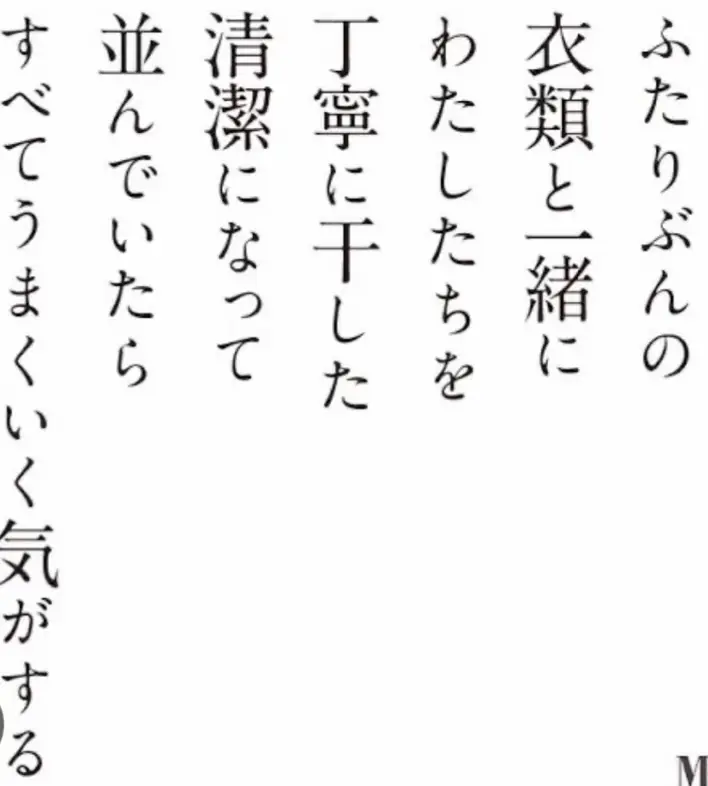 ふたりぶんの
衣類と一緒に
わたしたちを
丁寧に干した
清潔になって
並んでいたら
すべてうまくいく気がする
M